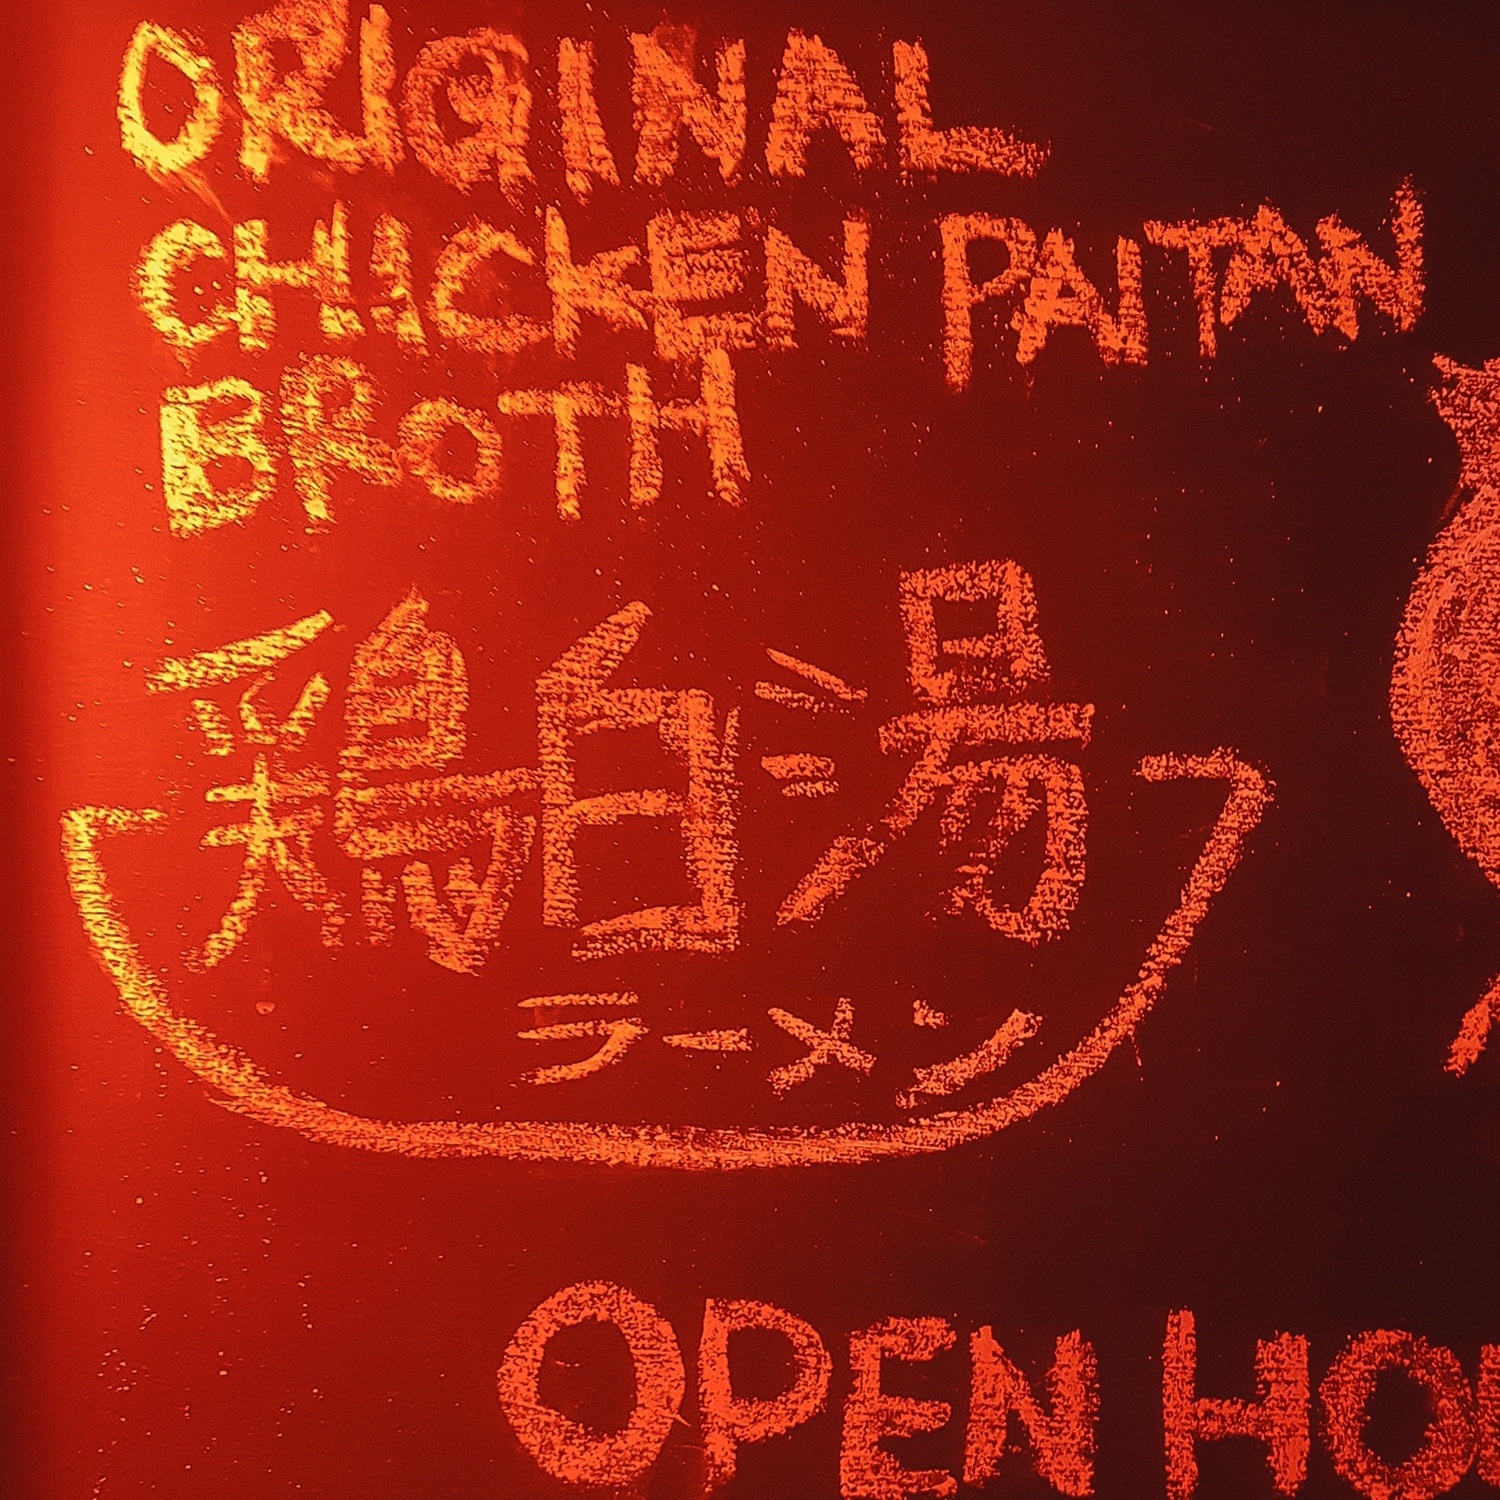 ORIGINAL
CHICKEN PAITAN
BROTH
鶏白湯
ラーメン
OPEN